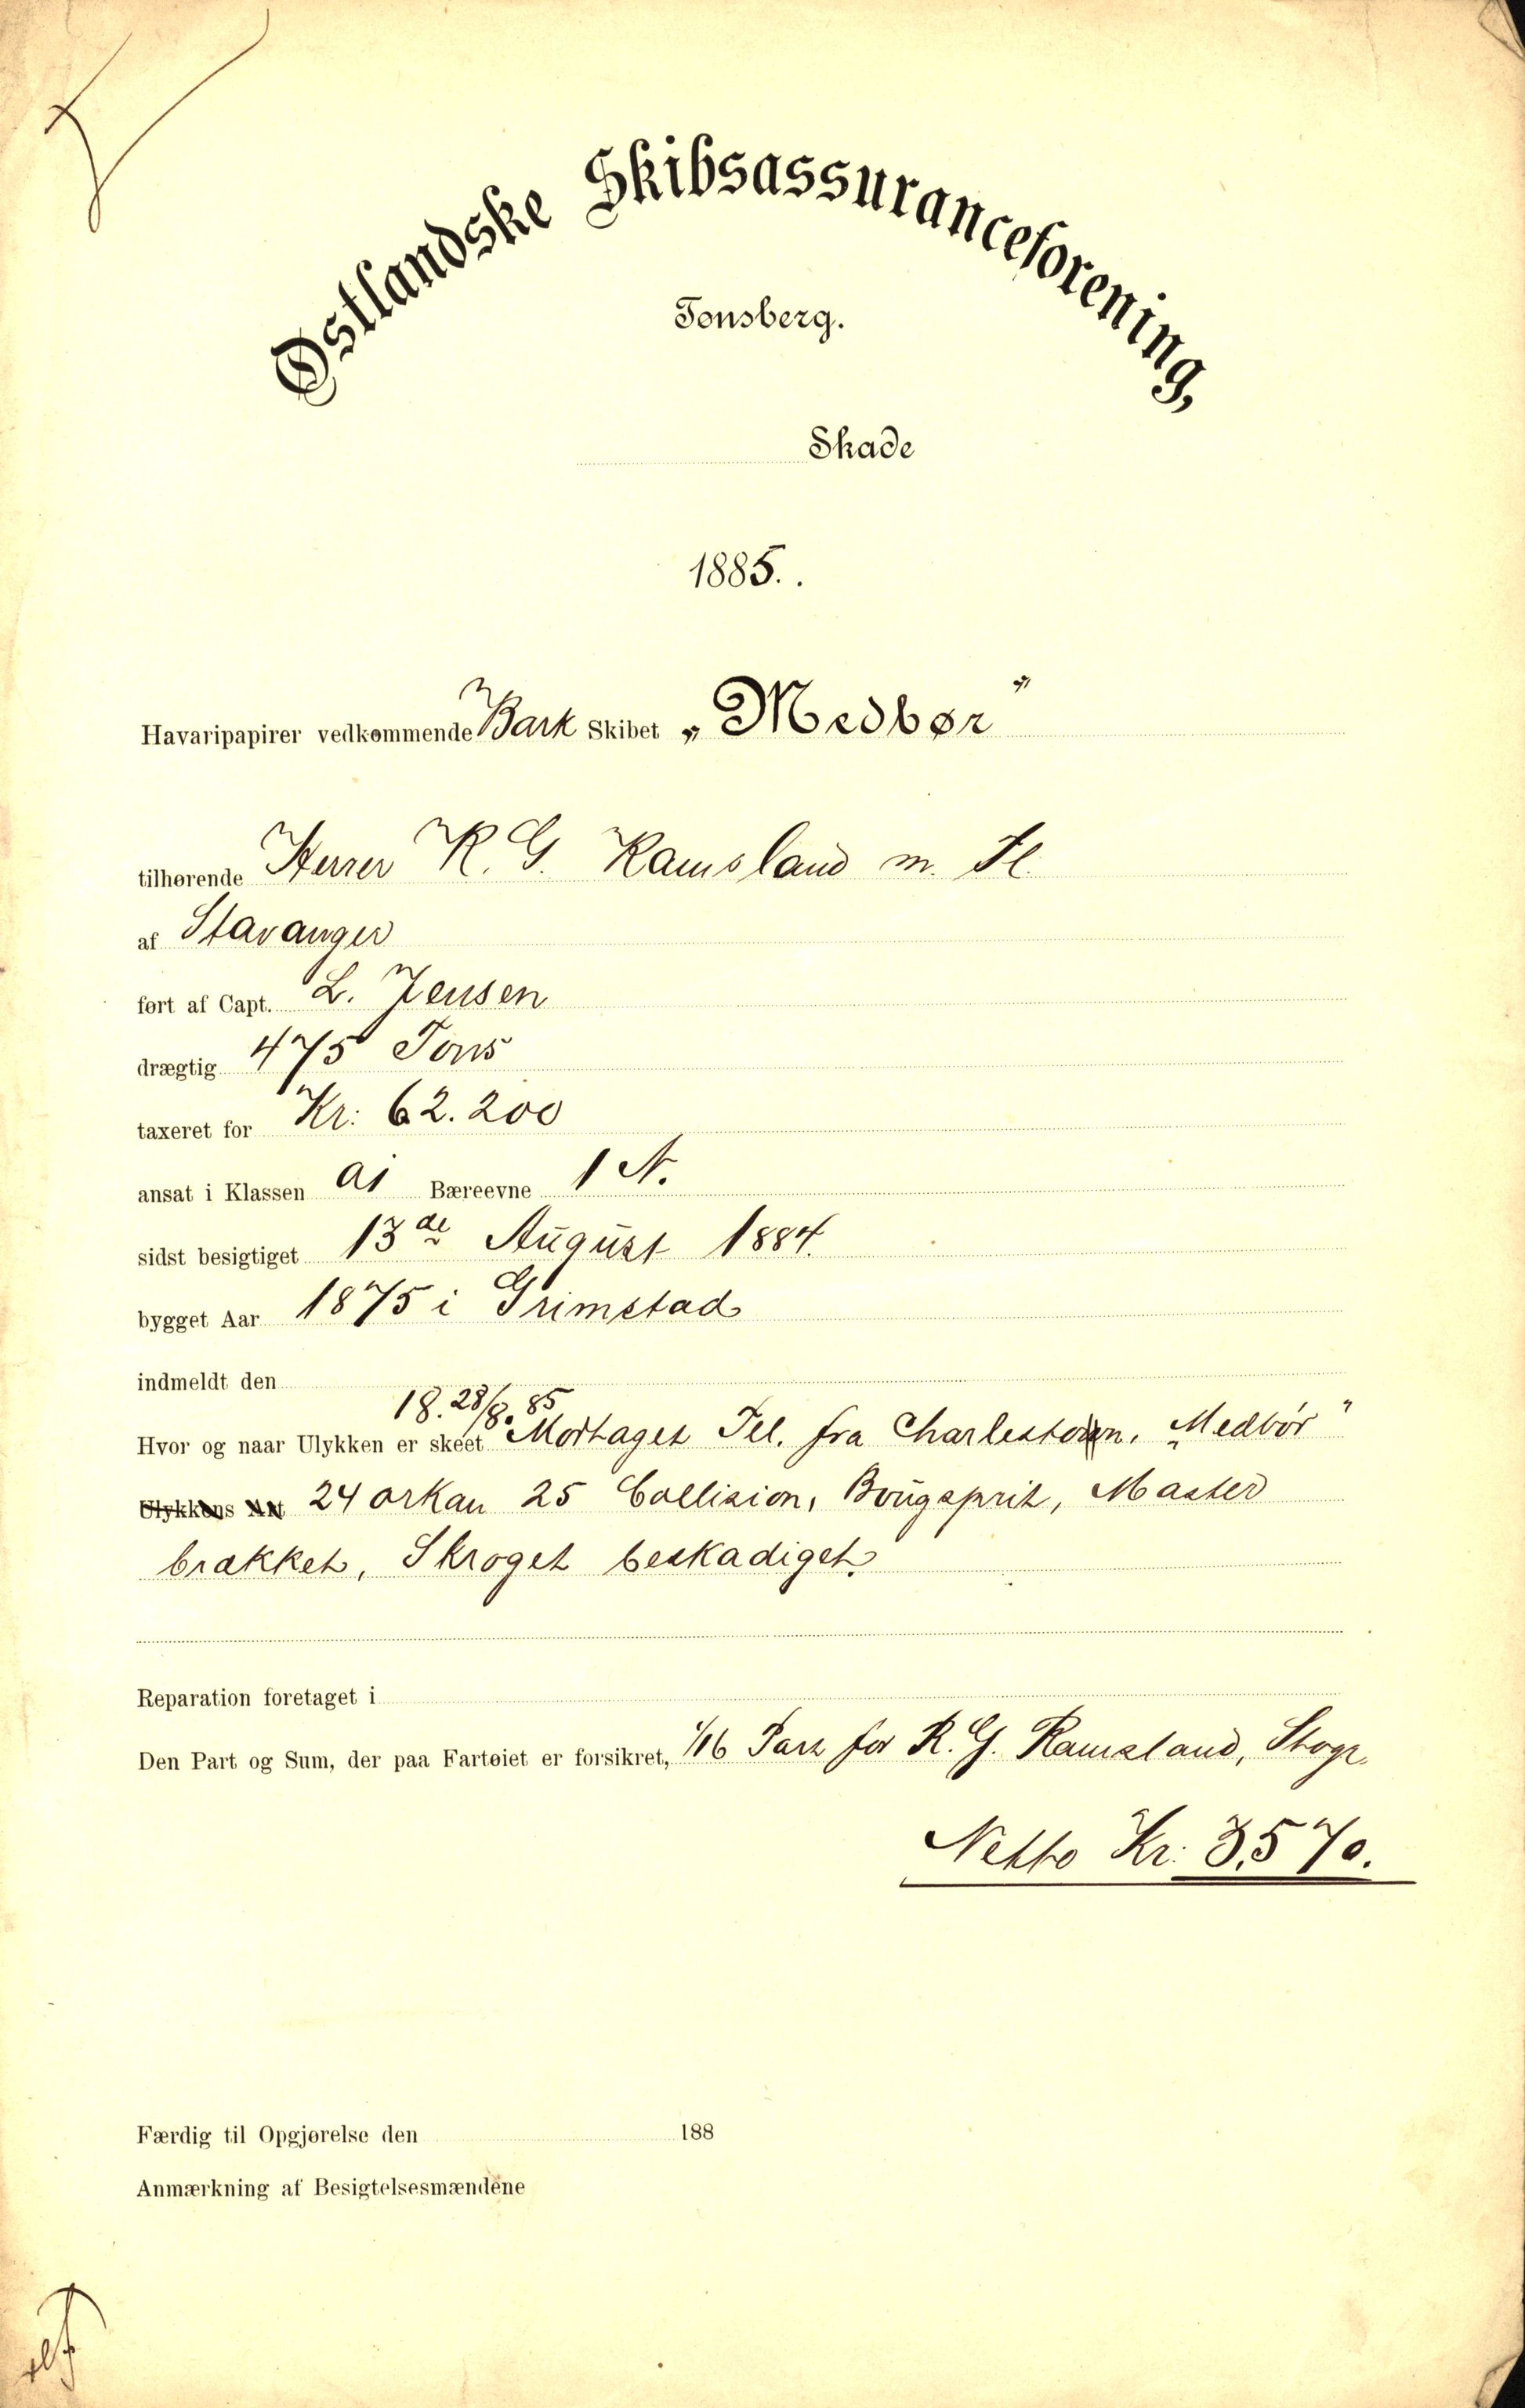 Østlandske Skibsassuranceforening,
Tønsberg.
Skade
1885..
Havaripapirer vedkommende Bark Skibet „Medbør"
tilhørende Herrer R. G. Ramsland m. Fl.
af Stavanger
ført af Capt. L. Jensen
drægtig 475 Tons
taxeret for Kr: 62.200
ansat i Klassen A1 Bæreevne 1 N.
sidst besigtiget 13de August 1884.
bygget Aar 1875 i Grimstad
indmeldt den
18.28/8.85
Hvor og naar Ulykken er skeet Mottaget Tel. fra Charlestown. „Medbør"
Ulykkens Art 24 orkan 25 Collision, Bougsprit, Master
brækket, Skroget beskadiget.
Reparation foretaget i
Den Part og Sum, der paa Fartøiet er forsikret, 1/16 Part for R. G. Ramsland, Stvgr.
Netto Kr: 3,570.
Færdig til Opgjørelse den 188
Anmærkning af Besigtelsesmændene